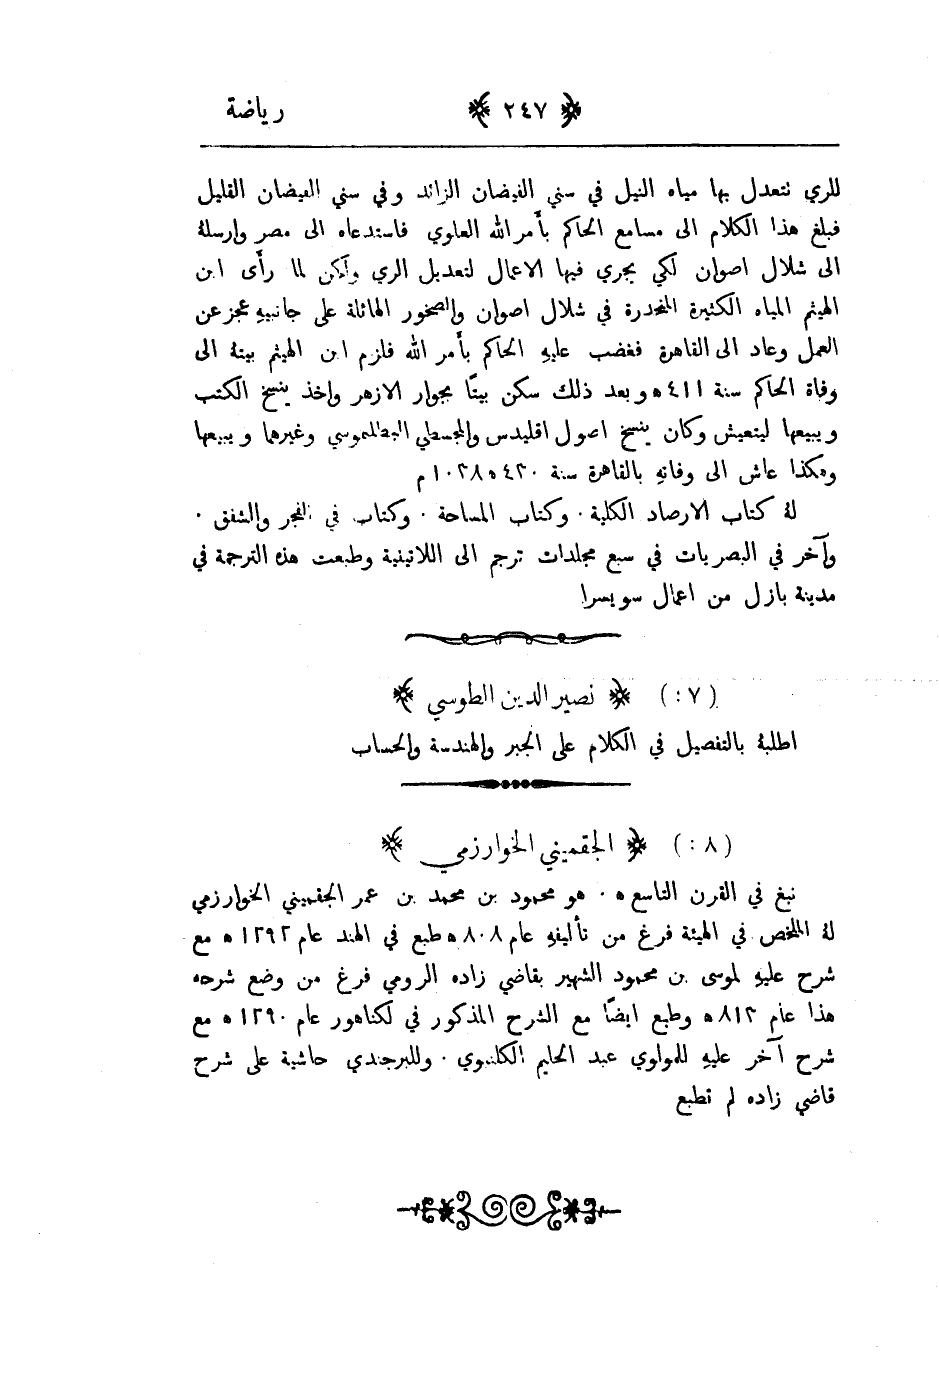 رياضة ﴿ ٢٤٧ ﴾
للري نتعدل بها مياه النيل في سني الفيضان الزائد وفي سني الفيضان القليل
فبلغ هذا الكلام الى مسامع الحاكم بأمر الله العلوي فاستدعاه الى مصر وارسلهُ
الى شلال اصوان لكي يجري فيها الاعمال لتعديل الري ولكن لما رأى ابن
الهيثم المياه الكثيرة المنحدرة في شلال اصوان والصخور الهائلة على جانبيهِ عجز عن
العمل وعاد الى القاهرة فغضب عليهِ الحاكم بأمر الله فلزم ابن الهيثم بيتهُ الى
وفاة الحاكم سنة ٤١١ ه وبعد ذلك سكن بيتًا بجوار الازهر واخذ ينسخ الكتب
ويبيعها ليتعيش وكان ينسخ اصول اقليدس والمجسطي البطلموسي وغيرهما ويبيعها
وهكذا عاش الى وفاتهِ بالقاهرة سنة ٤٣٠ ه ١٠٣٨ م
لهُ كتاب الارصاد الكلية · وكتاب المساحة · وكتاب في الفجر والشفق ·
وآخر في البصريات في سبع مجلدات ترجم الى اللاتينية وطبعت هذه الترجمة في
مدينة بازل من اعمال سويسرا
(٧:) ﴿ نصير الدين الطوسي ﴾
اطلبهُ بالتفصيل في الكلام على الجبر والهندسة والحساب
(٨:) ﴿ الجقميني الخوارزمي ﴾
نبغ في القرن التاسع ه · هو محمود بن محمد بن عمر الجغميني الخوارزمي
لهُ الملخص في الهيئة فرغ من تأليفهِ عام ٨٠٨ ه طبع في الهند عام ١٢٩٢ ه مع
شرح عليهِ لموسى بن محمود الشهير بقاضي زاده الرومي فرغ من وضع شرحه
هذا عام ٨١٣ ه وطبع ايضًا مع الشرح المذكور في لكناهور عام ١٢٩٠ ه مع
شرح آخر عليهِ للمولوي عبد الحليم الكلنبوي · وللبرجندي حاشية على شرح
قاضي زاده لم تطبع